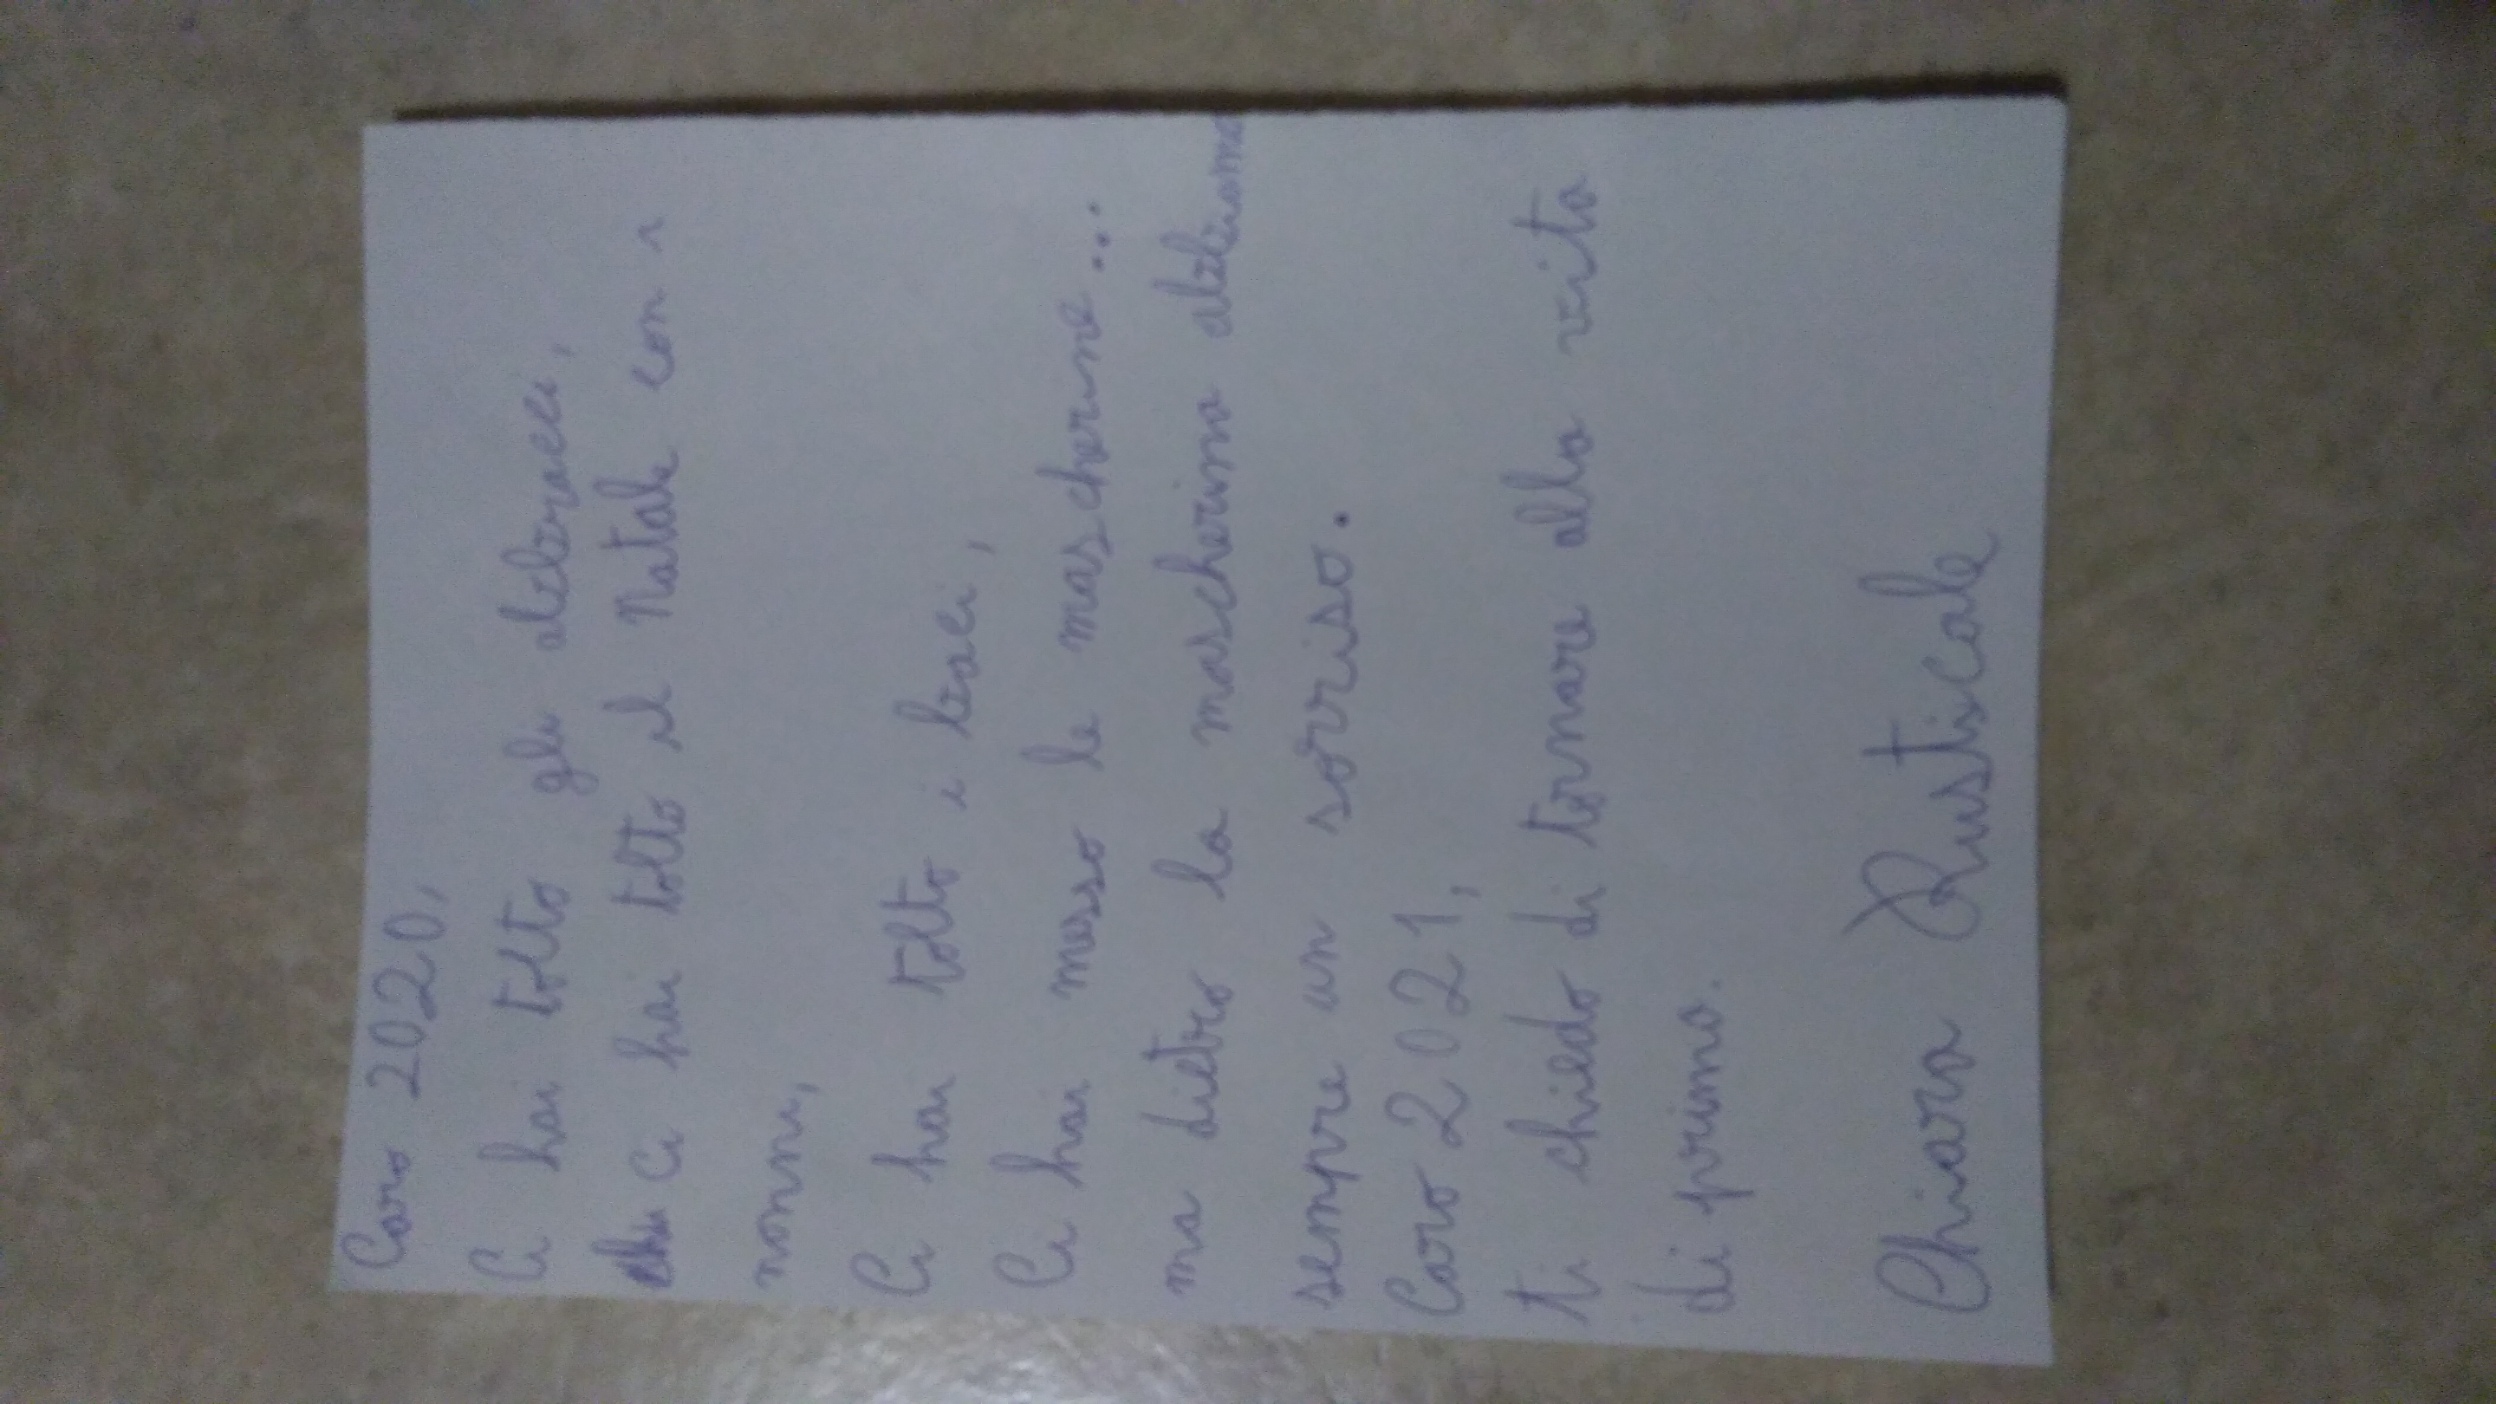 Caro 2020,
Ci hai tolto gli abbracci,
Ci hai tolto il Natale con i
nonni,
Ci hai tolto i baci,
Ci hai messo le mascherine...
ma dietro la mascherina abbiamo
sempre un sorriso.
Caro 2021,
ti chiedo di tornare alla vita
di prima.
Chiara Rusticale